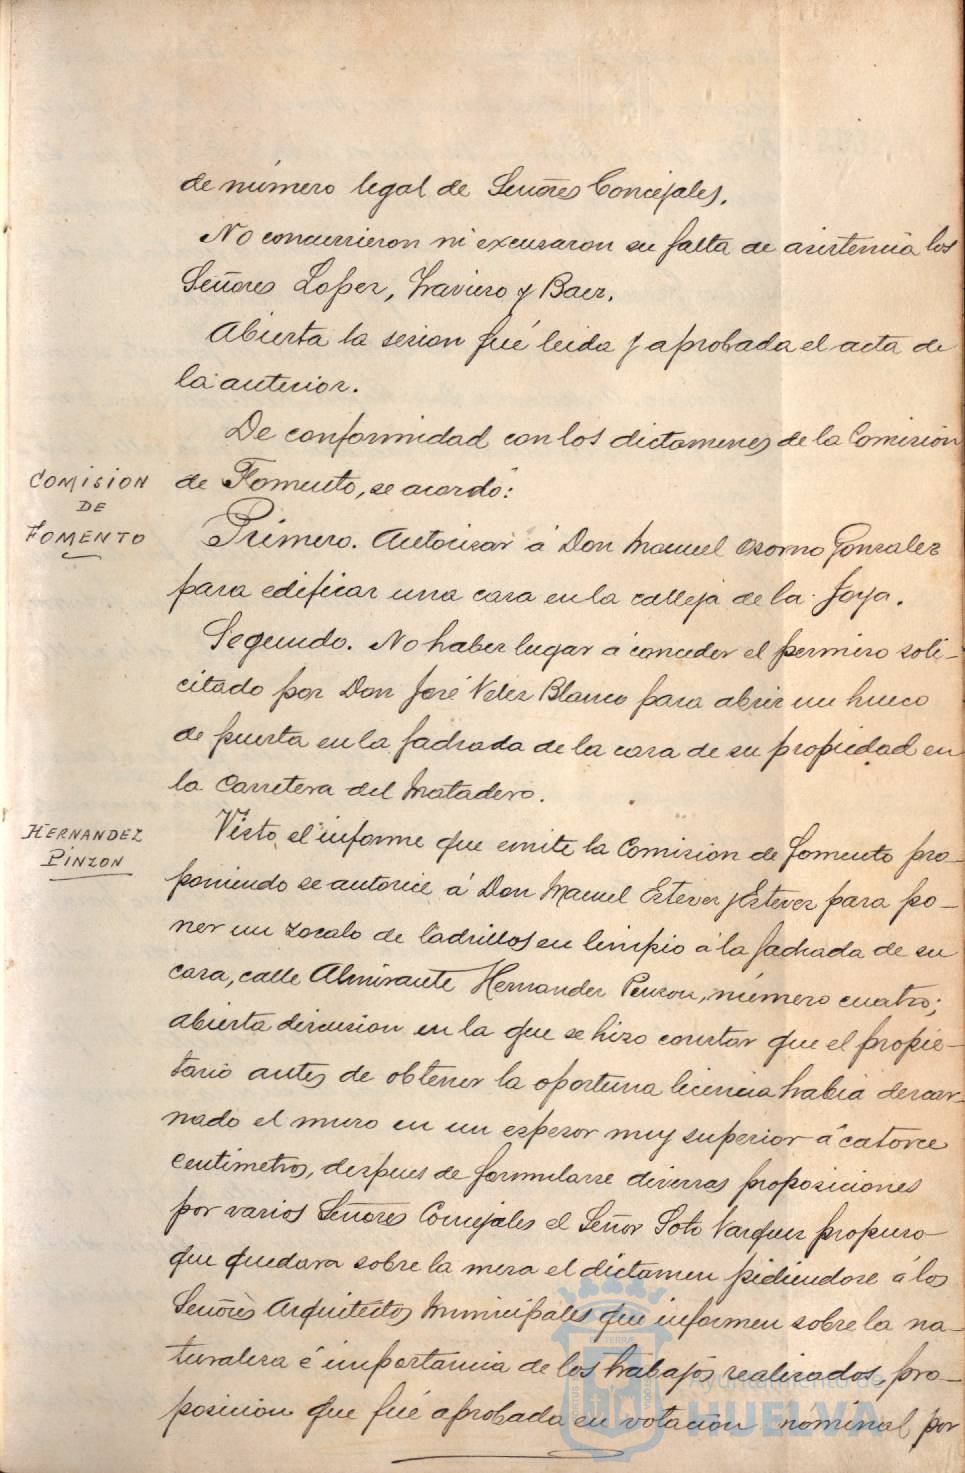 de número legal de Señores Concejales.
No concurrieron ni excusaron su falta de asistencia los
Señores Lopez, Traviero y Baez.
Abierta la sesion fué leida y aprobada el acta de
la anterior.
De conformidad con los dictamenes de la Comision
COMISION
DE
FOMENTO
de Fomento, se acordó:
Primero. Autorizar á Don Manuel Osorno Gonzalez
para edificar una casa en la calleja de la Joya.
Segundo. No haber lugar á conceder el permiso soli-
citado por Don José Velez Blanco para abrir un hueco
de puerta en la fachada de la casa de su propiedad en
la Carretera del Matadero.
HERNANDEZ
PINZON
Visto el informe que emite la Comision de Fomento pro-
poniendo se autorice á Don Manuel Estevez y Estevez para po-
ner un zocalo de ladrillos en limpio á la fachada de su
casa, calle Almirante Hernandez Pinzon, número cuatro;
abierta discusion en la que se hizo constar que el propie-
tario antes de obtener la oportuna licencia habia descar-
nado el muro en un espesor muy superior á catorce
centimetros, despues de formularse diversas proposiciones
por varios Señores Concejales el Señor Soto Vazquez propuso
que quedara sobre la mesa el dictamen pidiendose á los
Señores Arquitectos Municipales que informen sobre la na-
turaleza é importancia de los trabajos realizados, pro-
posicion que fué aprobada en votacion nominal por
Ayuntamiento de
HUELVA